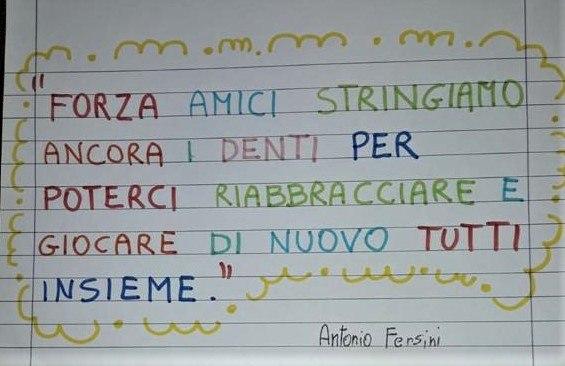 "FORZA AMICI STRINGIAMO
ANCORA I DENTI PER
POTERCI RIABBRACCIARE E
GIOCARE DI NUOVO TUTTI
INSIEME."
Antonio Fersini